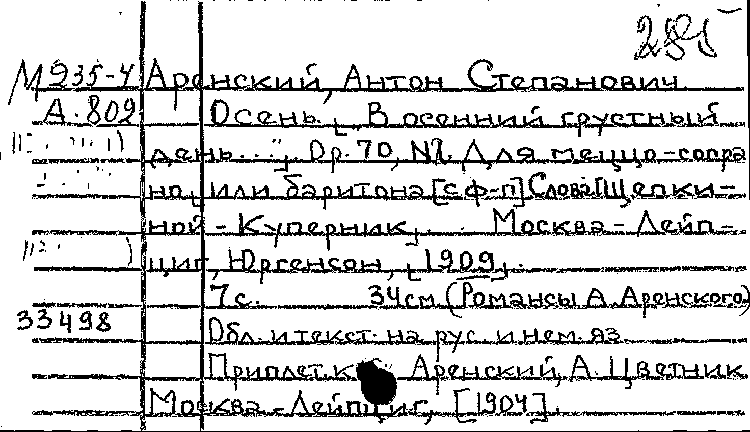 М 935-4 Аренский, Антон Степанович
А-809 Осень. „В осенний грустный
день...", Op. 70, №1. Для меццо-сопра
но, или баритона [с ф-п] Слова [Щепки-
ной - Куперник]. Москва - Лейп-
циг, Юргенсон, [1909].
7 с. 34 см (Романсы А. Аренского)
33498 Обл. и текст. на рус. и нем. яз.
Приплет. к Аренский, А. Цветник
Москва - Лейпциг, [1904].